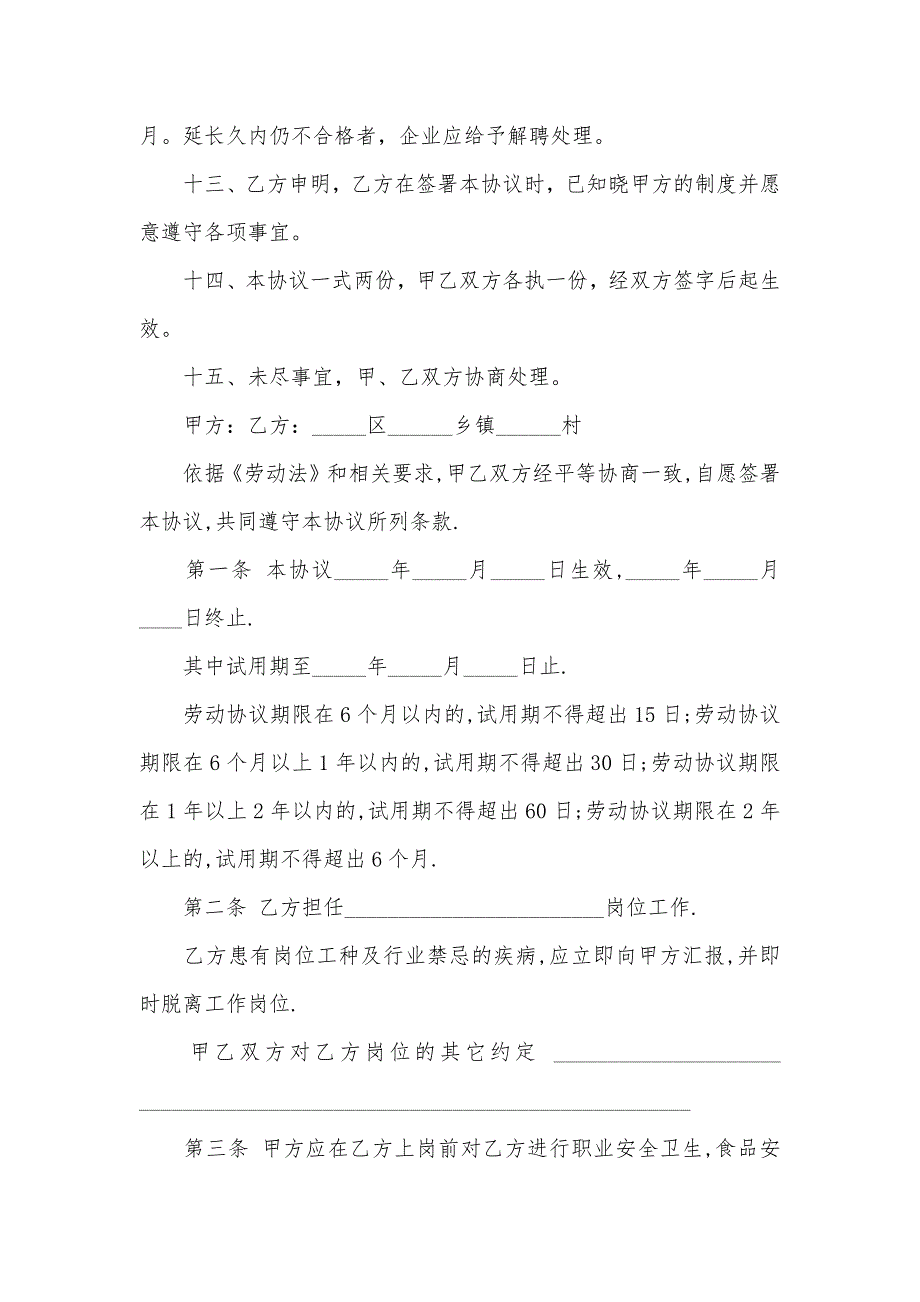 月。延长久内仍不合格者，企业应给予解聘处理。
十三、乙方申明，乙方在签署本协议时，已知晓甲方的制度并愿
意遵守各项事宜。
十四、本协议一式两份，甲乙双方各执一份，经双方签字后起生
效。
十五、未尽事宜，甲、乙双方协商处理。
甲方：乙方：_____区______乡镇______村
依据《劳动法》和相关要求,甲乙双方经平等协商一致,自愿签署
本协议,共同遵守本协议所列条款.
第一条 本协议_____年_____月_____日生效,_____年_____月
____日终止.
其中试用期至_____年_____月_____日止.
劳动协议期限在6个月以内的,试用期不得超出15日;劳动协议
期限在6个月以上1年以内的,试用期不得超出30日;劳动协议期限
在1年以上2年以内的,试用期不得超出60日;劳动协议期限在2年
以上的,试用期不得超出6个月.
第二条 乙方担任________________________岗位工作.
乙方患有岗位工种及行业禁忌的疾病,应立即向甲方汇报,并即
时脱离工作岗位.
甲乙双方对乙方岗位的其它约定 _____________________
___________________________________________________
第三条 甲方应在乙方上岗前对乙方进行职业安全卫生,食品安